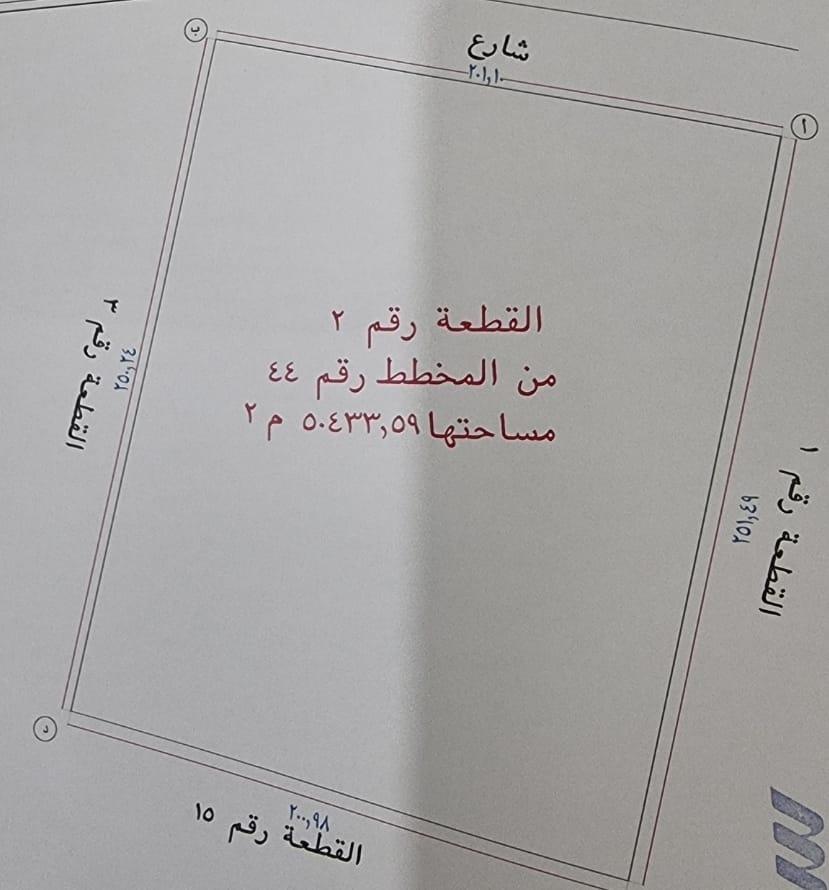 شارع
٢٠١,١٠
أ
ب
القطعة رقم ٢
من المخطط رقم ٤٤
مساحتها ٥٠٤٣٣,٥٩ م ٢
القطعة رقم ٣
٢٥٠,٢٤
القطعة رقم ١
٢٥١,٤٩
د
٢٠٠,٩٨
القطعة رقم ١٥